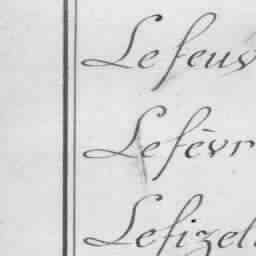 Lefeuv
Lefèvr
Lefizel